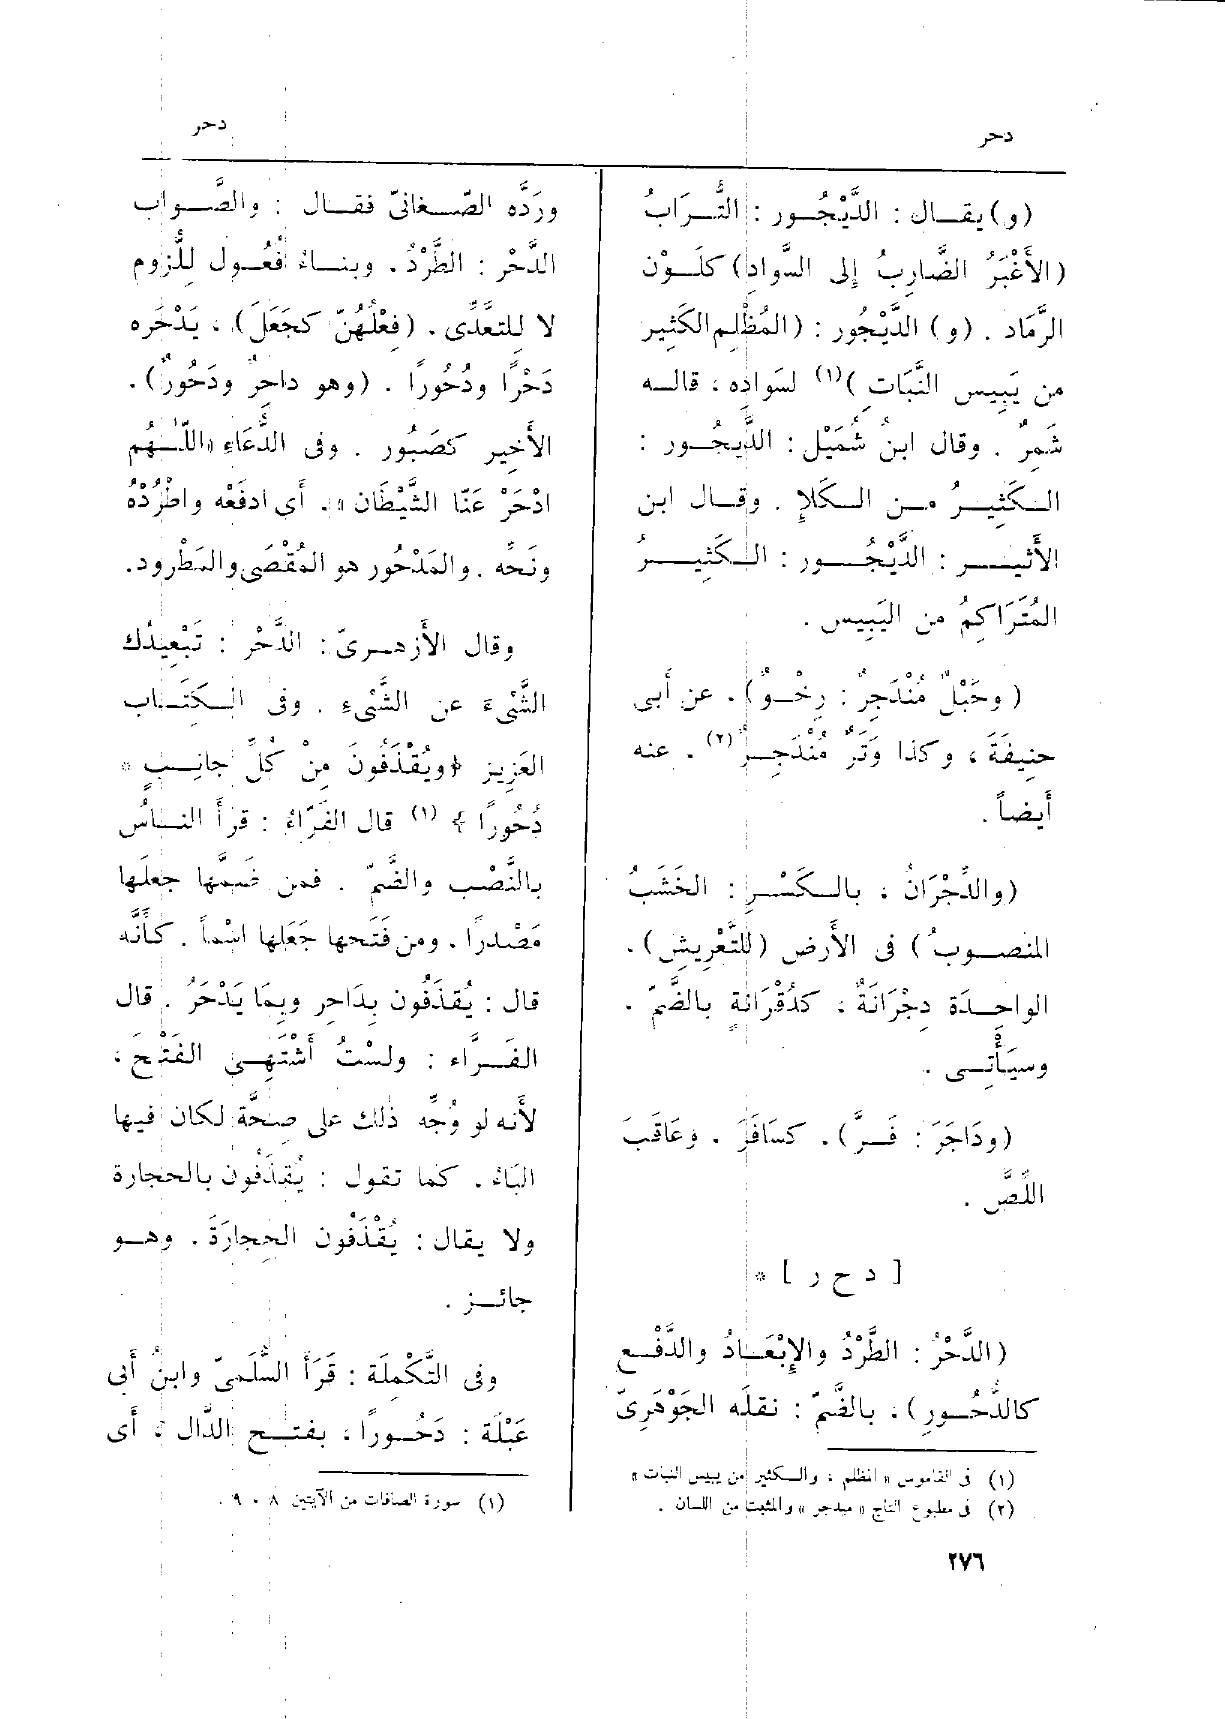 دحر
دحر
(و) يقال : الدَّيْجُور : التُّرَابُ
(الأَغْبَرُ الضَّارِبُ إلى السَّوادِ) كلَوْن
الرَّمَاد . (و) الدَّيْجُور : (المُظْلِم الكَثِير
من يَبِيس النَّبَاتِ )(١) لسَوادِه ، قاله
شَمِرٌ . وقال ابنُ شُمَيْل : الدَّيجُور :
الكَثِيرُ من الكَلإِ . وقال ابن
الأَثير : الدَّيْجُور : الكَثِيرُ
المُتَرَاكِمُ من اليَبِيس .
( وحَبْلٌ مُنْدَجِرٌ : رِخْوٌ) . عن أَبى
حنِيفَةَ ، وكذا وَتَرٌ مُنْدَجِرٌ(٢) . عنه
أَيضاً .
(والدِّجْرَانُ ، بالكَسْرِ : الخَشَبُ
المنصوبُ) فى الأَرض (للتَّعْرِيش) .
الواحِدَة دِجْرَانَةٌ ، كدُقْرَانَةٍ بالضَّمّ .
وسيَأْتِى .
(ودَاجَرَ : فَرَّ) . كسَافَرَ . وعَاقَبَ
اللِّصَّ .
[ د ح ر ] *
(الدَّحْرُ : الطَّرْدُ والإِبْعَادُ والدَّفْع
كالدُّحُورِ) ، بالضَّمّ : نقلَه الجَوْهَرِىّ
(١) فى القاموس « المظلم ، والكثير من يبيس النبات »
(٢) فى مطبوع التاج « ميدجر » والمثبت من اللسان .
ورَدَّه الصّغانىّ فقال : والصَّواب
الدَّحْر : الطَّرْدُ . وبناءُ فُعُول لِلُّزوم
لا لِلتعَدِّى . (فِعْلُهُنّ كجَعَلَ) ، يَدْحَره
دَحْرًا ودُحُورًا . (وهو داحِرٌ ودَحُورٌ) .
الأَخِير كصَبُور . وفى الدُّعَاءِ «اللّهُم
ادْحَرْ عَنّا الشَّيْطَان » . أَى ادفَعْه واطْرُدْهُ
ونَحِّه . والمَدْحُور هو المُقْصَى والمَطْرود.
وقال الأَزهرىّ : الدَّحْر : تَبْعِيدُك
الشَّىْءَ عن الشَّىْءِ . وفى الكِتَاب
العَزِيز ﴿ويُقْذَفُونَ مِنْ كُلِّ جانِبٍ *
دُحُورًا ﴾ (١) قال الفَرّاءُ : قرأَ الناسُ
بالنَّصْب والضَّمّ . فمن ضَمَّها جعلَها
مَصْدرًا . ومن فَتَحها جَعَلها اسْماً . كأَنَّه
قال : يُقذَفُون بِدَاحِرٍ وبِمَا يَدْحَرُ . قال
الفَرَّاء : ولسْتُ أَشْتَهِى الفَتْحَ ،
لأَنه لو وُجِّه ذلك على صِحَّة لكان فيها
البَاءُ . كما تقول : يُقذَفُون بالحجارة
ولا يقال : يُقْذَفُون الحِجارَةَ . وهو
جائز .
وفى التَّكْمِلَة : قَرَأَ السُّلَمِىّ وابنُ أَبى
عَبْلَة : دَحُورًا ، بفتح الدَّال ، أَى
(١) سورة الصافات من الآيتين ٨ ، ٩ .
٢٧٦